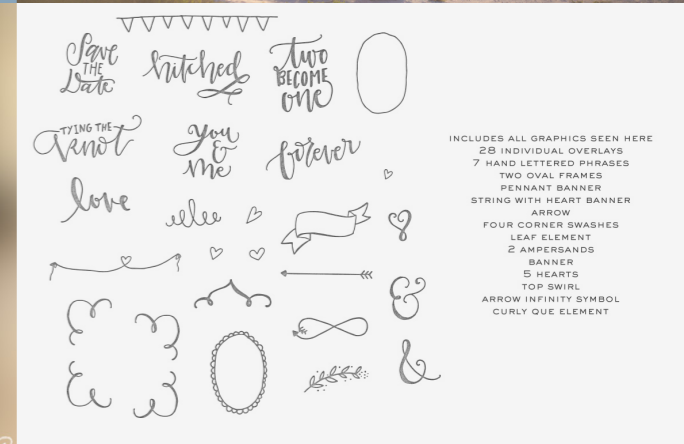 Save
THE
Date
hitched
two
BECOME
one
TYING THE
Knot
You
&
Me
forever
love
&
&
INCLUDES ALL GRAPHICS SEEN HERE
28 INDIVIDUAL OVERLAYS
7 HAND LETTERED PHRASES
TWO OVAL FRAMES
PENNANT BANNER
STRING WITH HEART BANNER
ARROW
FOUR CORNER SWASHES
LEAF ELEMENT
2 AMPERSANDS
BANNER
5 HEARTS
TOP SWIRL
ARROW INFINITY SYMBOL
CURLY QUE ELEMENT